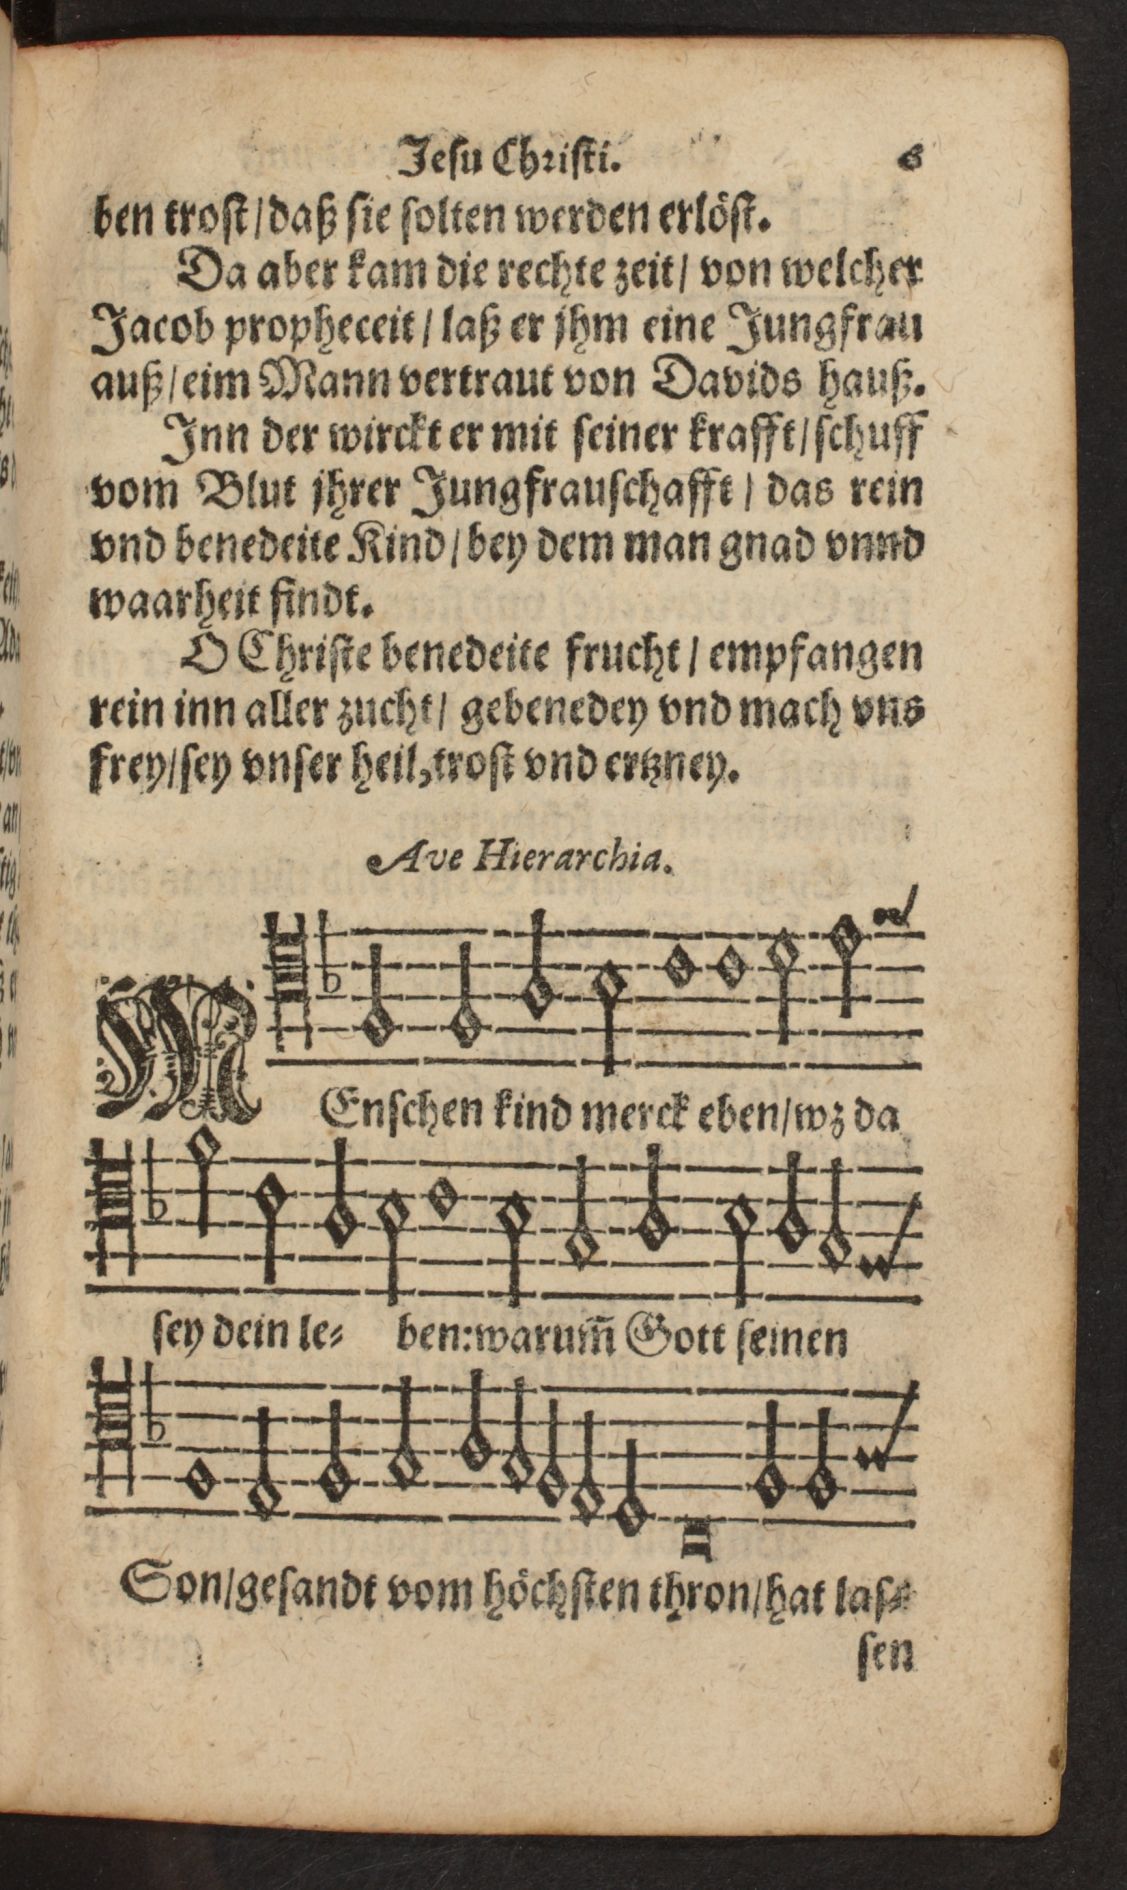 Jesu Christi. 6
ben trost / daß sie solten werden erlöst.
Da aber kam die rechte zeit / von welcher
Jacob propheceit / laß er jhm eine Jungfrau
auß / eim Mann vertraut von Davids hauß.
Inn der wirckt er mit seiner krafft / schuff
vom Blut jhrer Jungfrauschafft / das rein
vnd benedeite Kind / bey dem man gnad vnnd
waarheit findt.
O Christe benedeite frucht / empfangen
rein inn aller zucht / gebenedey vnd mach vns
frey / sey vnser heil, trost vnd ertzney.
Ave Hierarchia.
MEnschen kind merck eben / wz da
sey dein le- ben: warum̃ Gott seinen
Son / gesandt vom höchsten thron / hat las-
sen